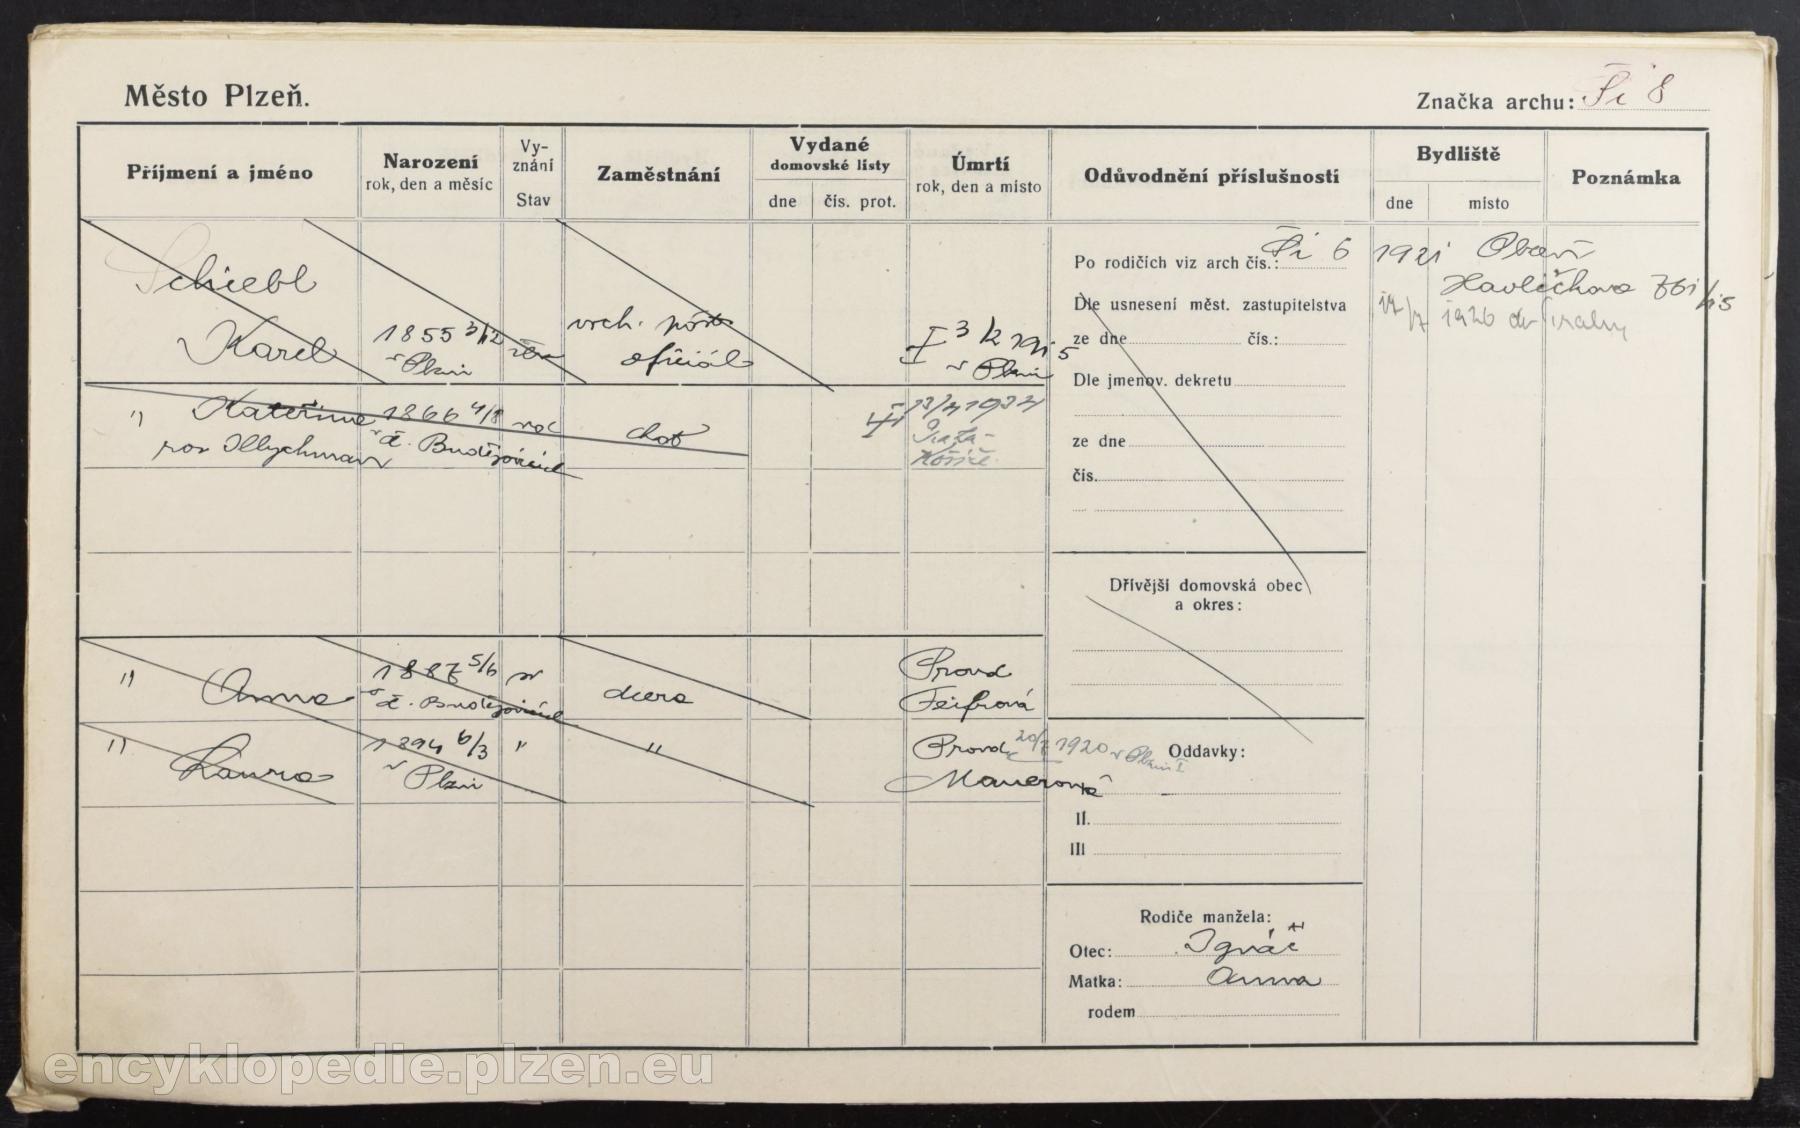 Město Plzeň.
Značka archu: Ši 8
Příjmení a jméno
Narození
rok, den a měsíc
Vy-
znání
Stav
Zaměstnání
Vydané
domovské listy
dne
čís. prot.
Úmrtí
rok, den a místo
Odůvodnění příslušnosti
Bydliště
dne
místo
Poznámka
Schiebl
Karel
1855 3/12
v Plzni
vrch. pošt.
oficiál
3/2 1915
v Plzni
Po rodičích viz arch čís.: Ši 6
Dle usnesení měst. zastupitelstva
ze dne čís.:
Dle jmenov. dekretu
ze dne
čís.
1921
Havlíčkova
17/7 1926 do Prahy
" Kateřina
roz
1866 4/8
v Č. Budějovicích
choť
13/4 1934
Praha-
Košíře
Dřívější domovská obec
a okres:
" Anna
1887 5/6
v Č. Budějovicích
dcera
Provd
" Laura
1894 6/3
v Plzni
"
"
Provd 20/7 1920 v Plzni
Mauerová
Oddavky:
II.
III
Rodiče manžela:
Otec: Ignác
Matka: Anna
rodem
encyklopedie.plzen.eu